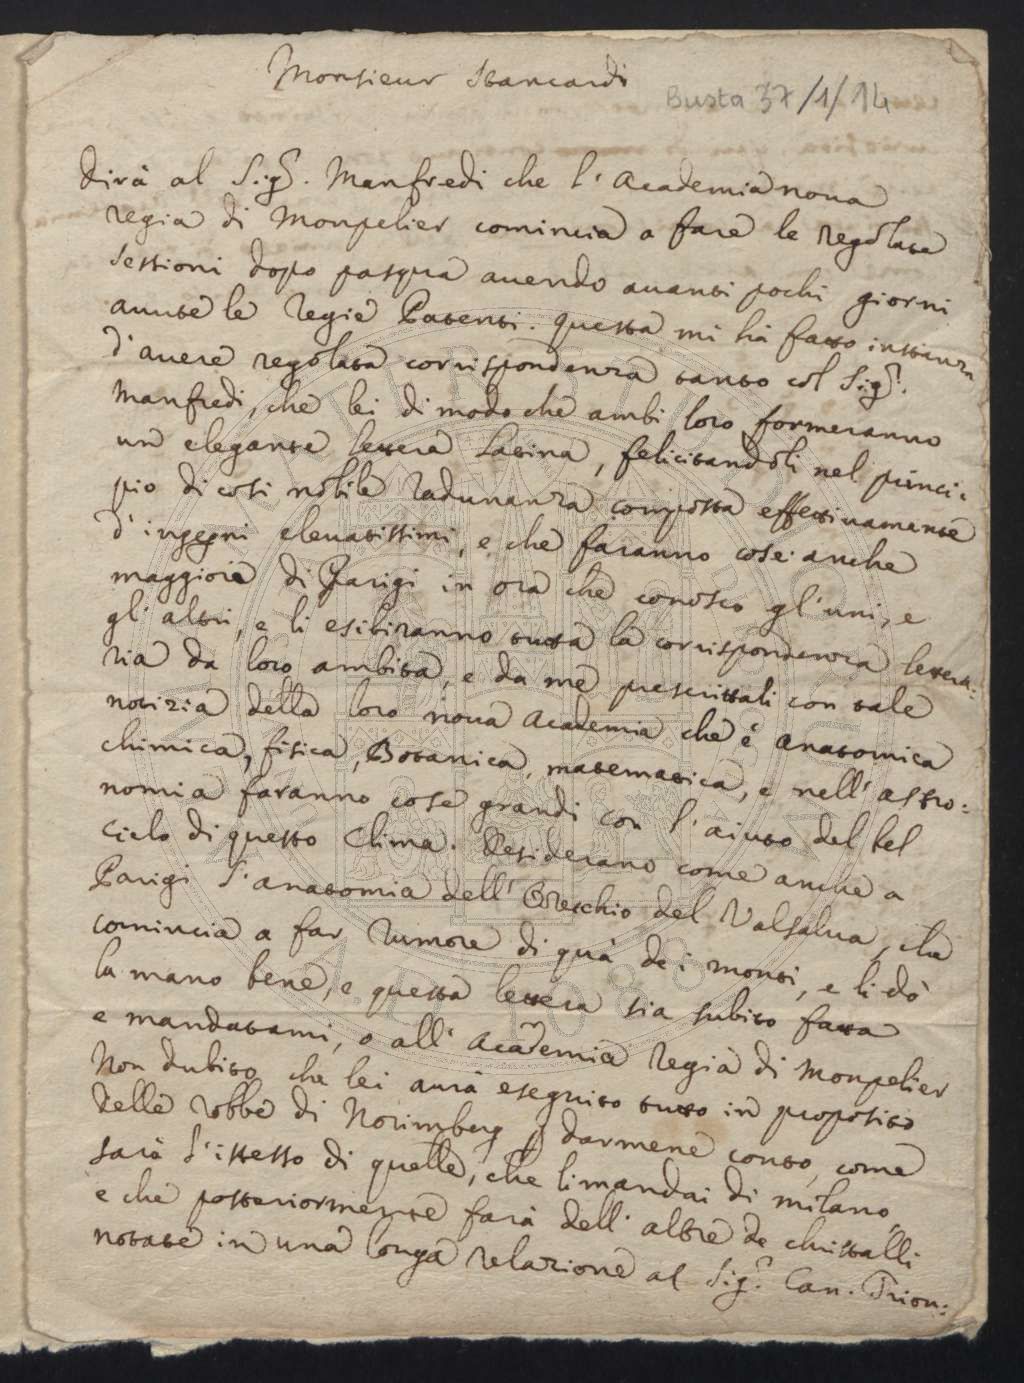 Monsieur Stancardi
Busta 37/1/14
dirà al Sig.r Manfredi che l'Academia noua
regia di Monpelier comincia a fare le regolate
sessioni dopo pasqua auendo auanti pochi giorni
auute le regie Patenti. questa mi hà fatto instanza
d'auere regolata corrispondenza tanto col Sig.r
Manfredi, che lei di modo che ambi loro formeranno
un elegante lettera Latina, felicitandoli nel princi:
pio di cosi nobile radunanza composta effettiuamente
d'ingegni eleuatissimi, e che faranno cose anche
maggiori di Parigi in ora che conosco gl'uni, e
gl'altri, e li esibiranno tutta la corrispondenza lettera:
ria da loro ambita, e da me prescrittali con tale
notizia della loro noua Academia che è anatomica
chimica, fisica, Botanica, matematica, e nell'astro:
nomia faranno cose grandi con l'aiuto del bel
Cielo di questo Clima. Desiderano come anche a
Parigi l'anatomia dell'Orecchio del Valsalua, che
comincia a far rumore di quà dei monti, e li dò
la mano bene, e questa lettera sia subito fatta
e mandatami, o all'Academia Regia di Monpelier
Non dubito che lei aurà eseguito tutto in proposito
delle robbe di Norimberg p darmene conto, come
sarà l'istesso di quelle, che li mandai di milano,
e che posteriormente farà dell'altre de christalli
notate in una longa relazione al Sig.r Can. Trion: